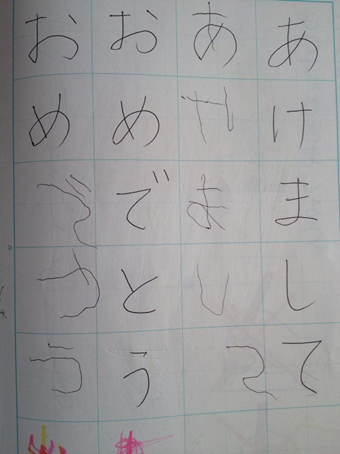 あけまして
あけまして
おめでとう
おめでとう